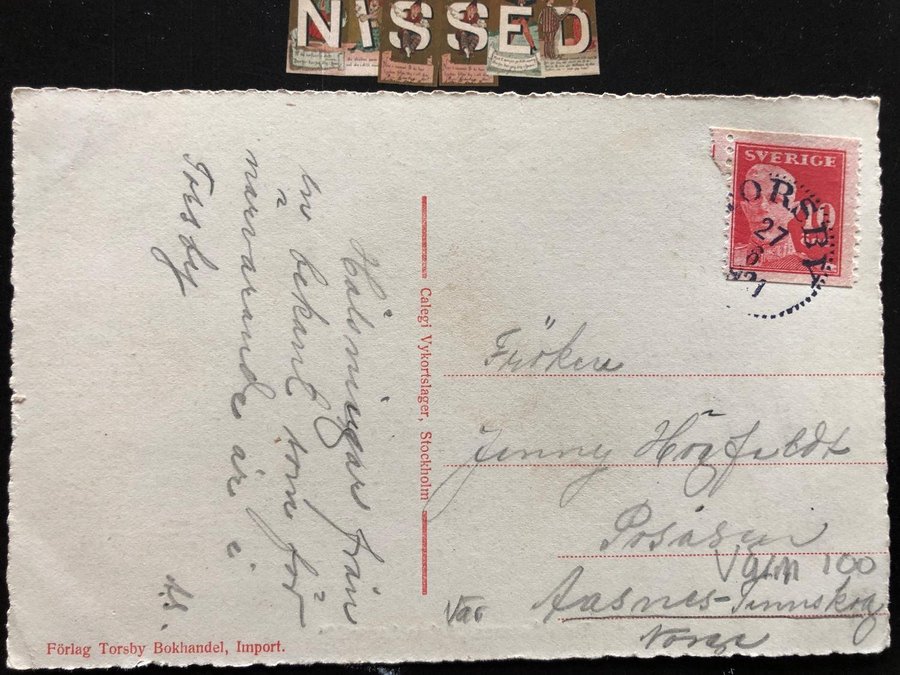 NISSED
SVERIGE
10
TORSBY
27
8
21
Hälsningar från
en bekant som för
närvarande är i
Torsby
A.S.
Calegi Vykortslager, Stockholm
Fröken
Jenny Högfeldt
Posåsen
Vgim 100
Aasnes-Finnskog
Norge
Var
Förlag Torsby Bokhandel, Import.